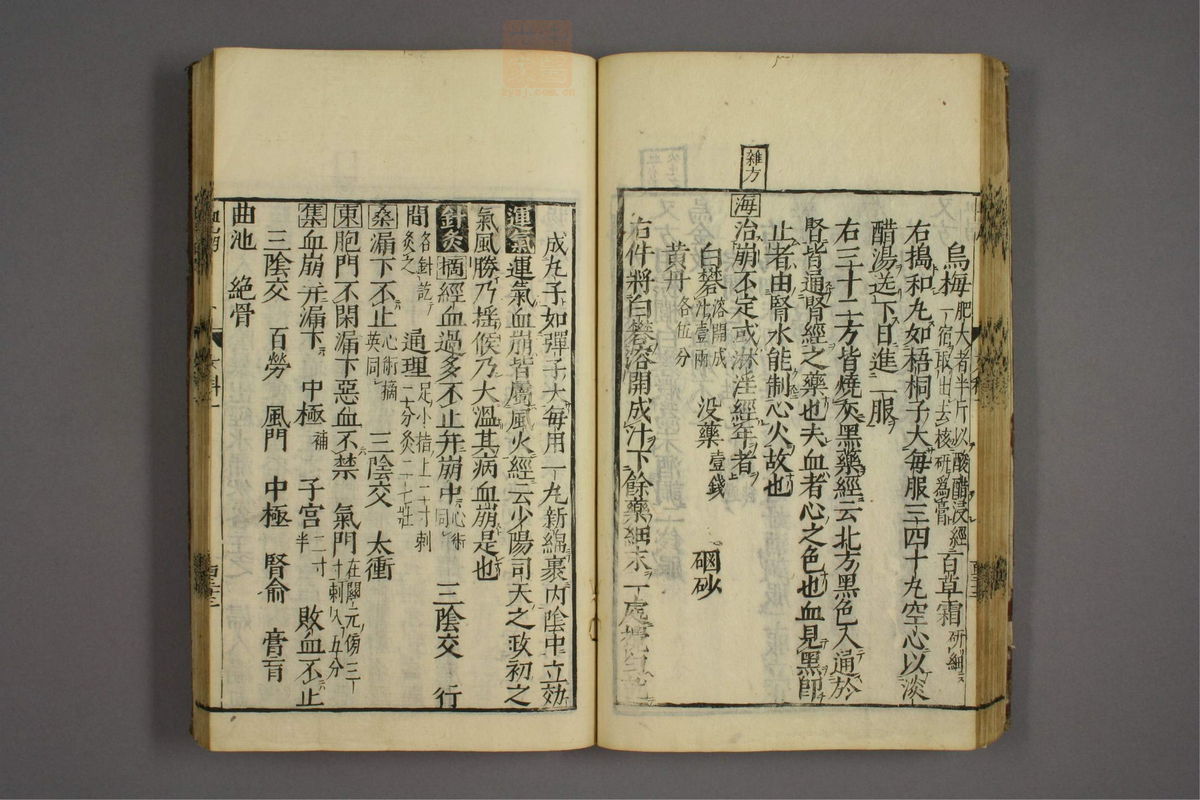 雜方
烏梅肥大者半斤以酸醋浸經一宿取出去核研爲膏 百草霜研細
右搗和丸如梧桐子大每服三四十丸空心以淡
醋湯送下日進一服
右三十二方皆燒灰黑藥經云北方黑色入通於
腎皆通腎經之藥也夫血者心之色也血見黑卽
止者由腎水能制心火故也
海治崩不定或淋瀝經年者
白礬溶開成汁壹兩 沒藥壹錢 硇砂
黃丹各伍分
右件將白礬溶開成汁下餘藥細末一處
成丸子如彈子大每用一丸新綿裹內陰中立効
運氣運氣血崩皆屬風火經云少陽司天之政初之
氣風勝乃搖候乃大溫其病血崩是也
針灸摘經血過多不止并崩中心術同 三陰交 行
間各針訖灸之 通理足小指上二寸刺二分灸二七壯
桑漏下不止心術摘英同 三陰交 太衝
東胞門不閉漏下惡血不禁 氣門在關元傍三寸刺入五分
集血崩并漏下 中極補 子宮二寸半 敗血不止
三陰交 百勞 風門 中極 腎俞 膏肓
曲池 絕骨
zysj.com.cn